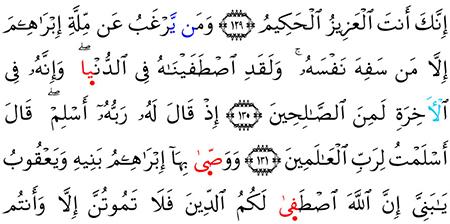 إِنَّكَ أَنتَ ٱلْعَزِيزُ ٱلْحَكِيمُ ١٢٩ وَمَن يَّرْغَبُ عَن مِّلَّةِ إِبْرَٰهِـۧمَ
إِلَّا مَن سَفِهَ نَفْسَهُۥ ۚ وَلَقَدِ ٱصْطَفَيْنَٰهُ فِى ٱلدُّنْيا ۖ وَإِنَّهُۥ فِى
ٱلْأَخِرَةِ لَمِنَ ٱلصَّٰلِحِينَ ١٣٠ إِذْ قَالَ لَهُۥ رَبُّهُۥٓ أَسْلِمْ ۖ قَالَ
أَسْلَمْتُ لِرَبِّ ٱلْعَٰلَمِينَ ١٣١ وَوَصّىٰ بِهَآ إِبْرَٰهِـۧمُ بَنِيهِ وَيَعْقُوبُ
يَٰبَنِىَّ إِنَّ ٱللَّهَ ٱصْطَفىٰ لَكُمُ ٱلدِّينَ فَلَا تَمُوتُنَّ إِلَّا وَأَنتُم